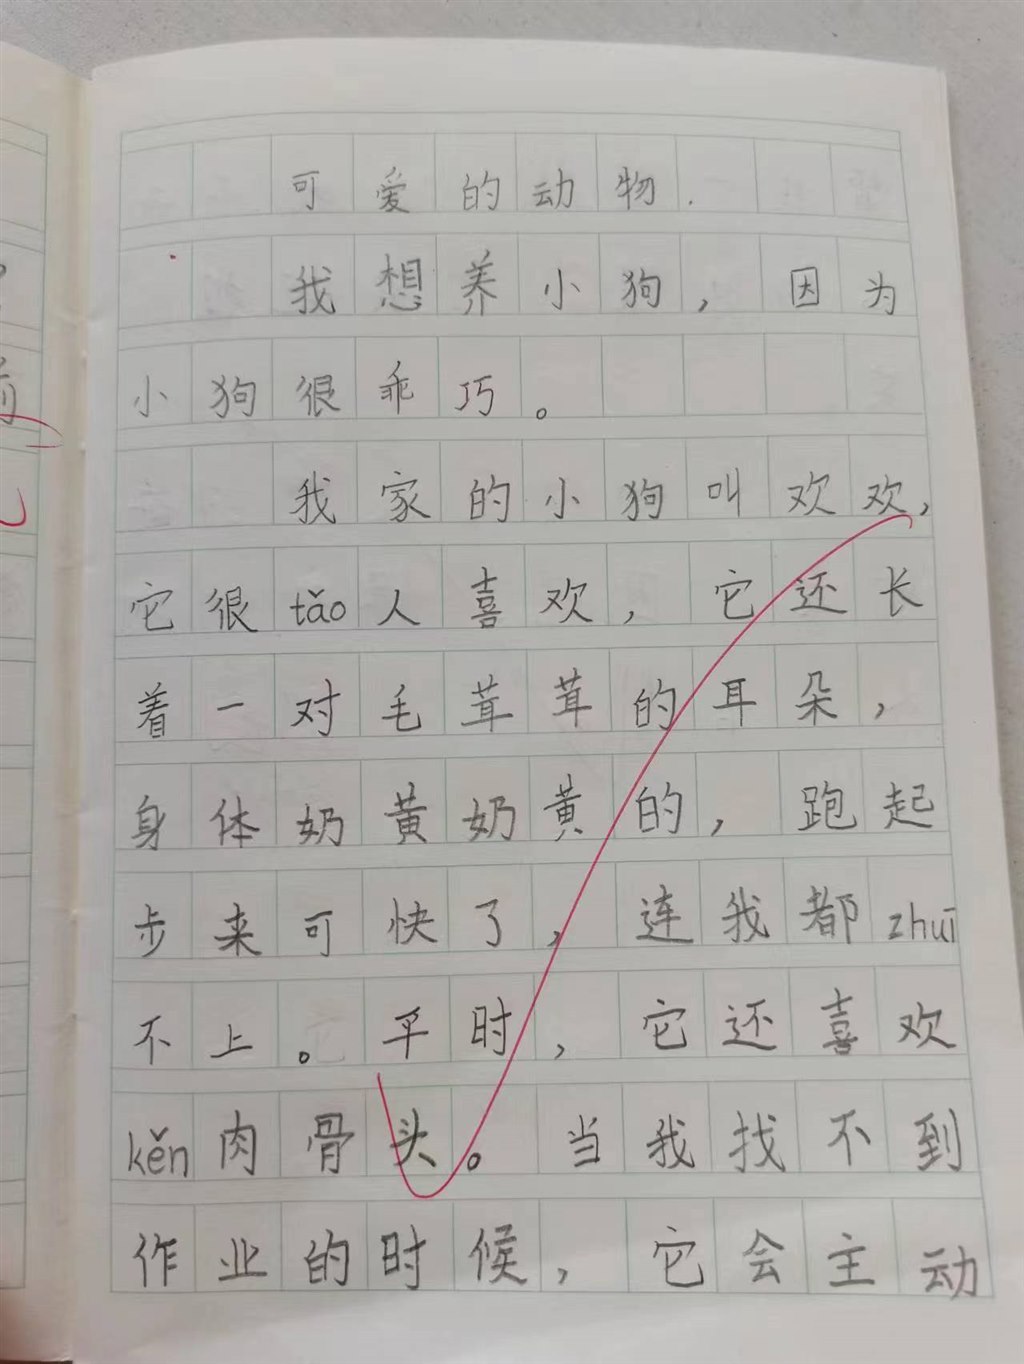 可爱的动物.
我想养小狗，因为
小狗很乖巧。
我家的小狗叫欢欢，
它很tǎo人喜欢，它还长
着一对毛茸茸的耳朵，
身体奶黄奶黄的，跑起
步来可快了，连我都zhuī
不上。平时，它还喜欢
kěn肉骨头。当我找不到
作业的时候，它会主动